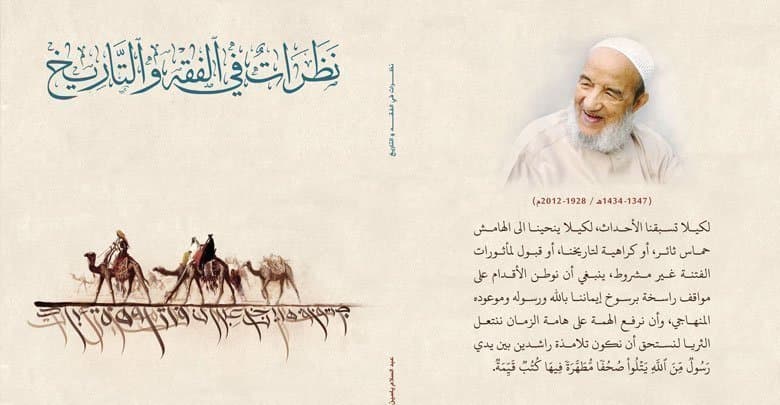 نَظَرَاتٌ فِي الفِقْهِ وَالتَّارِيخِ
نظرات في الفقه و التاريخ
عبد السلام ياسين
(1347-1434هـ / 1928-2012م)
لكيلا تسبقنا الأحداث، لكيلا ينحينا الى الهامش
حماس ثائر، أو كراهية لتاريخنا، أو قبول لمأثورات
الفتنة غير مشروط، ينبغي أن نوطن الأقدام على
مواقف راسخة برسوخ إيماننا بالله ورسوله وموعوده
المنهاجي، وأن نرفع الهمة على هامة الزمان ننتعل
الثريا لنستحق أن نكون تلامذة راشدين بين يدي
رَسُولٌ مِّنَ اللَّهِ يَتْلُواْ صُحُفًا مُّطَهَّرَةً فِيهَا كُتُبٌ قَيِّمَةٌ.